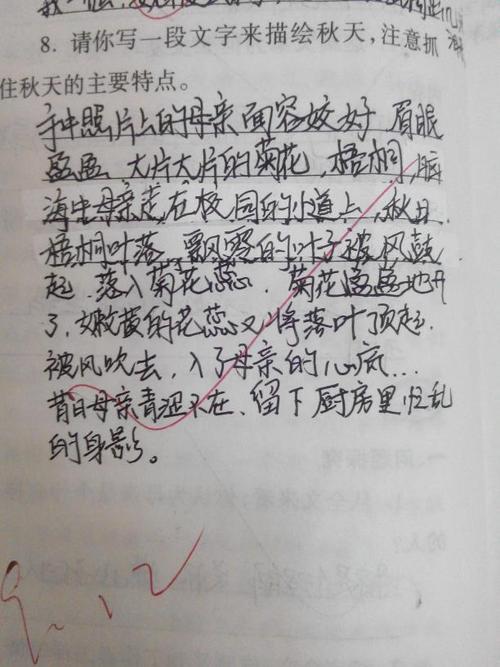 8. 请你写一段文字来描绘秋天，注意抓
住秋天的主要特点。
手中照片上的母亲面容姣好，眉眼
盈盈，大片大片的菊花，梧桐，脑
海中母亲走在校园的小道上，秋日，
梧桐叶落，飘零的叶子被风鼓
起，落入菊花蕊，菊花盈盈地开
了，嫩黄的花蕊又将落叶顶起，
被风吹去，入了母亲的心底…
昔日母亲青涩不在，留下厨房里忙乱
的身影。
9.12